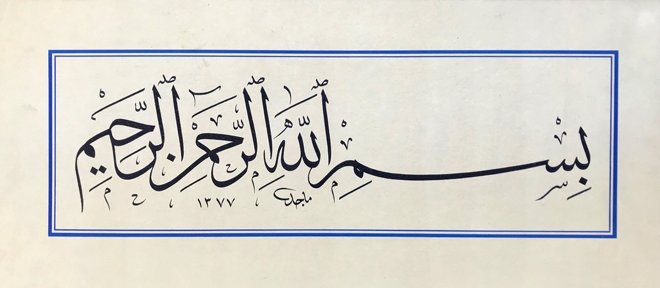 بِسْمِ ٱللَّهِ ٱلرَّحْمَٰنِ ٱلرَّحِيمِ
ماجد ١٣٧٧